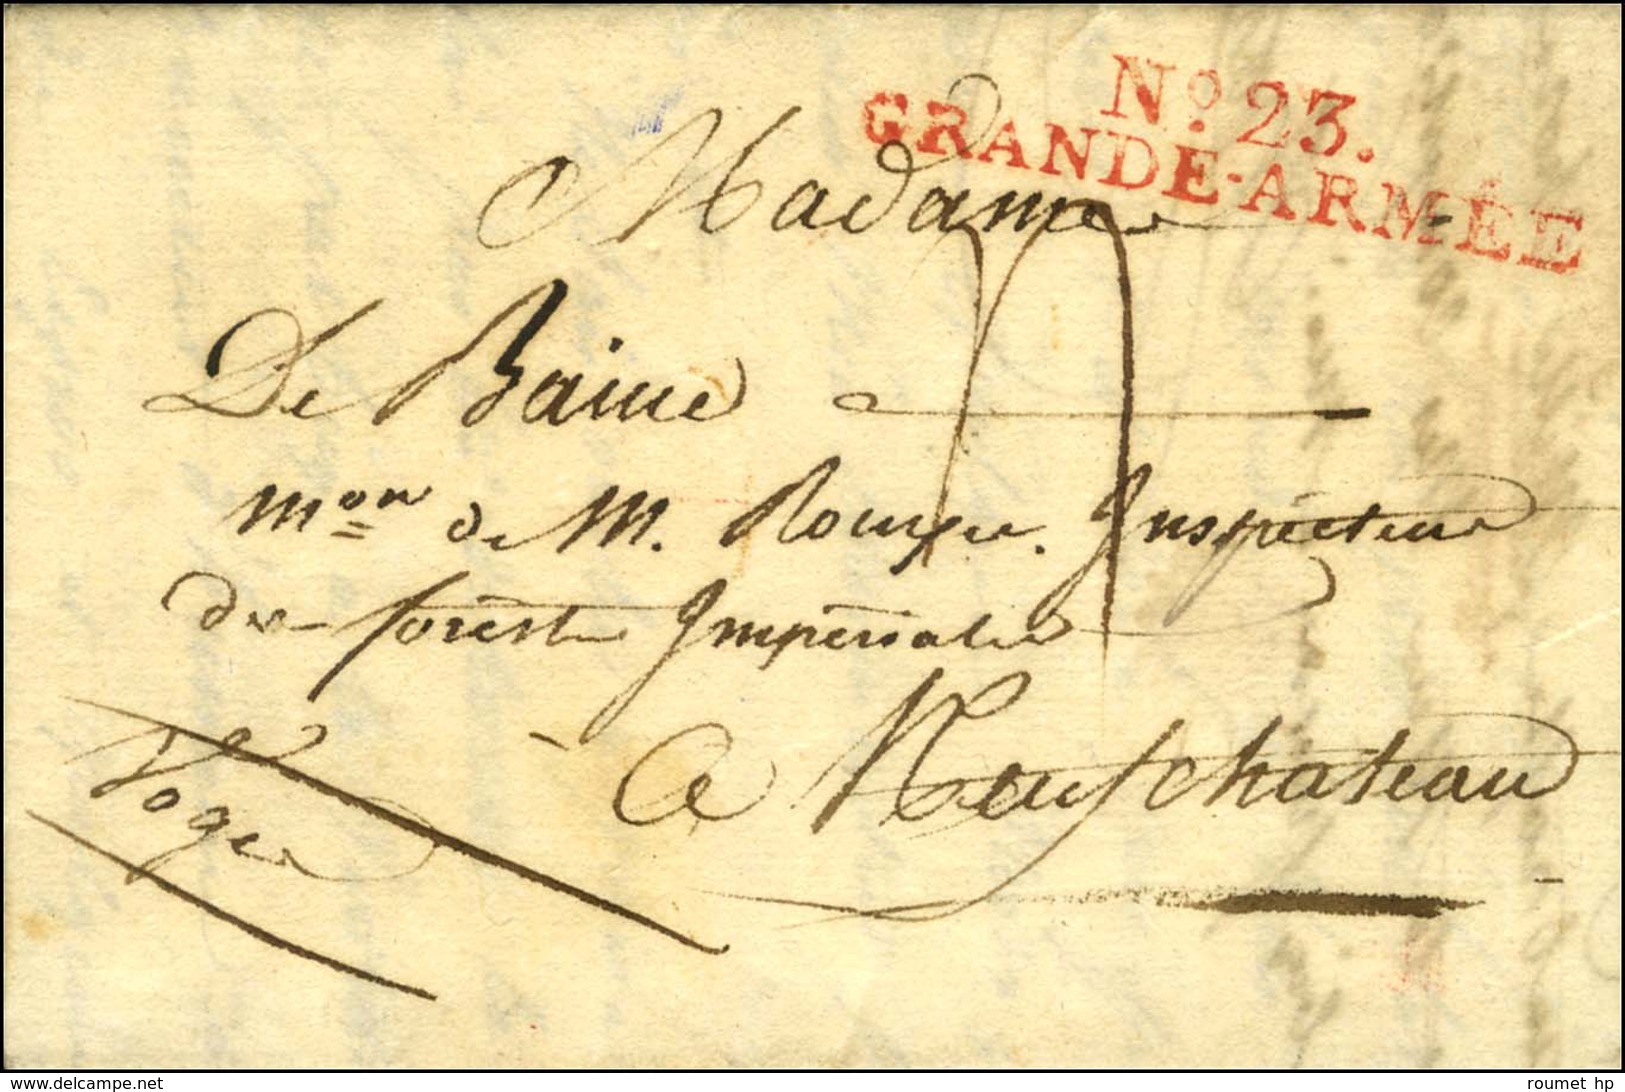 No. 23.
GRANDE-ARMÉE
Madame
De Baine
mon de M. Rouyer. Inspecteur
des forests Imperiales
a Neufchateau
Voges
www.delcampe.net
roumet hp